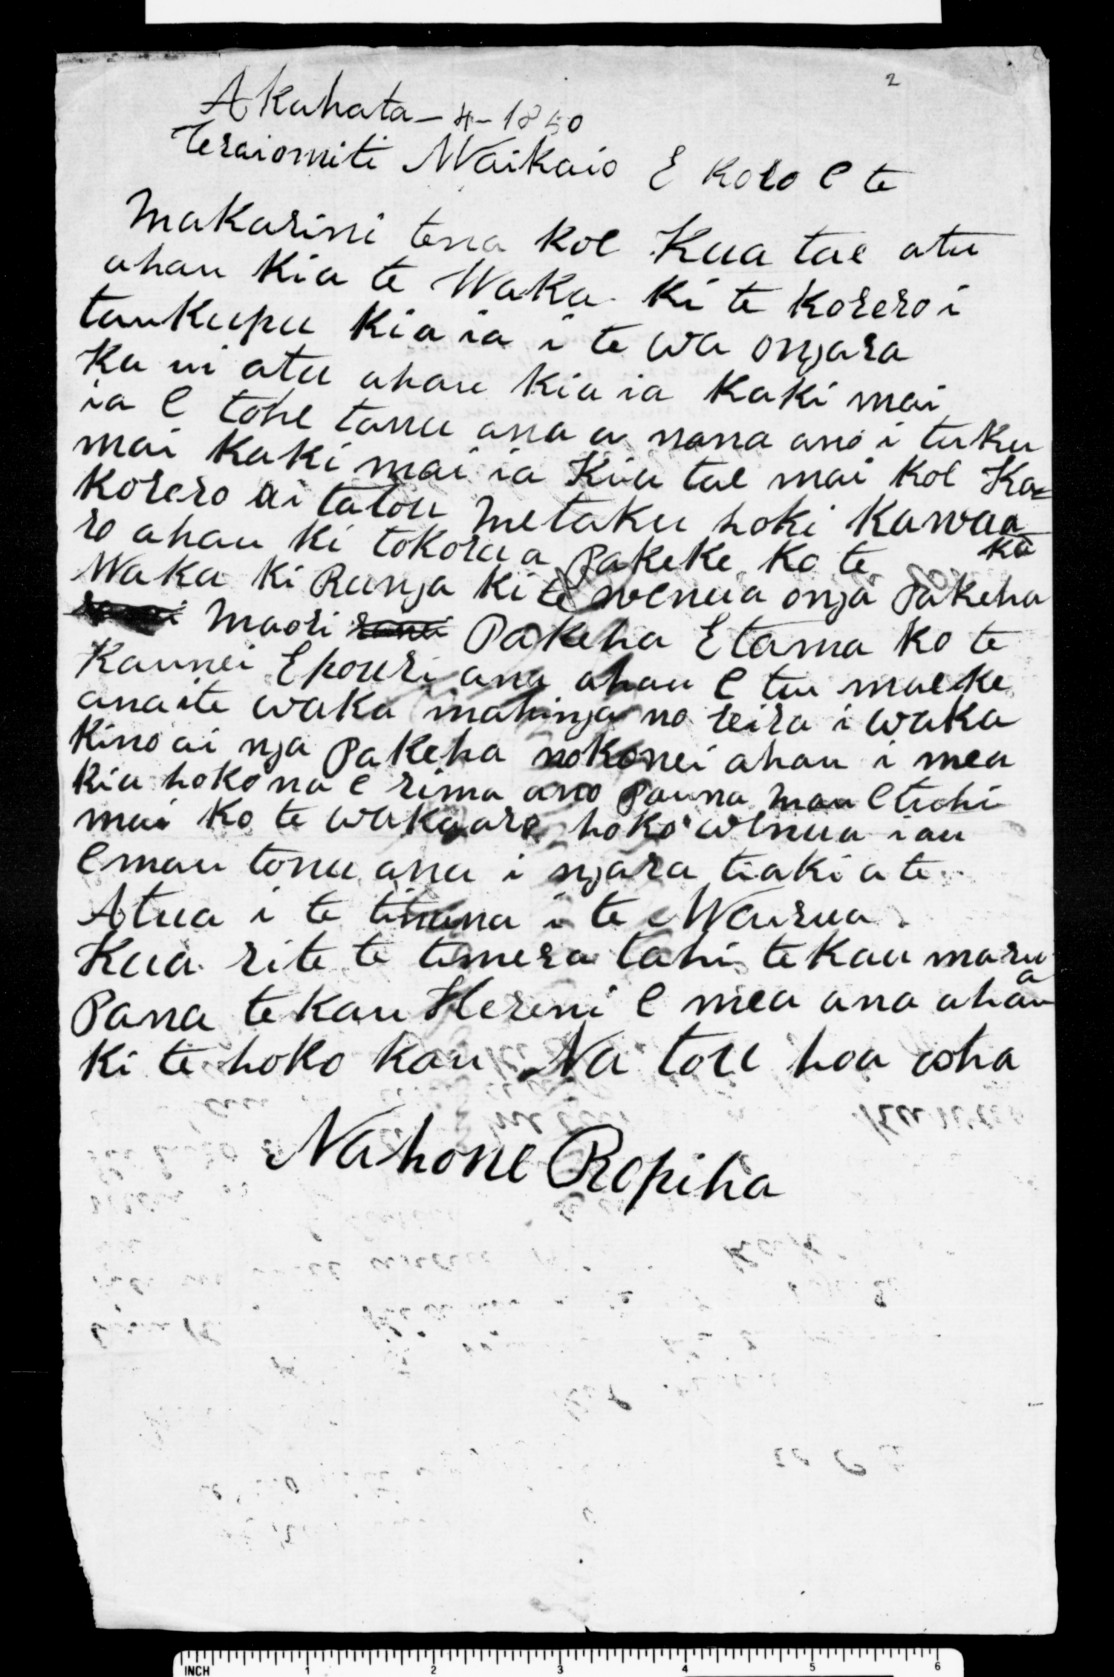 2
Akuhata - 4 - 1850
Teraiomiti Waikaio E Koro e te
Makarini tena koe Kua tae atu
ahau Kia te Waka Ki te Korero i
taukupu Kia ia i te wa ongara
Ka ui atu ahau Kia ia Kaki mai
ia e tohe tonu ana a nana ano i tuku
mai Kaki mai ia Kia tae mai koe Ka=
Korero ai tatou metaku hoki Kawaa
ka
ro ahau ki tokorua Pakeke Ko te
Waka Ki Runga Ki te wenua onga Pakeha
Maori Pakeha Etama Ko te
Kaunei Epouri ana ahau e tu maeke
anaite waka mahinga no reira i waka
Kino ai nga Pakeha nokonei ahau i mea
Kia hokona e rima ano Pauna mau etuhi
mai Ko te wakaaro hoko wenua iau
emau tonu ana i ngara tiaki a te
Atua i te tinana i te Wairua.
Kua rite te timera tahi tekau maru
a
Pana tekau Hereni e mea ana ahau
Ki te hoko kau Na tou hoa aoha
Nahone Ropiha
INCH 1 2 3 4 5 6